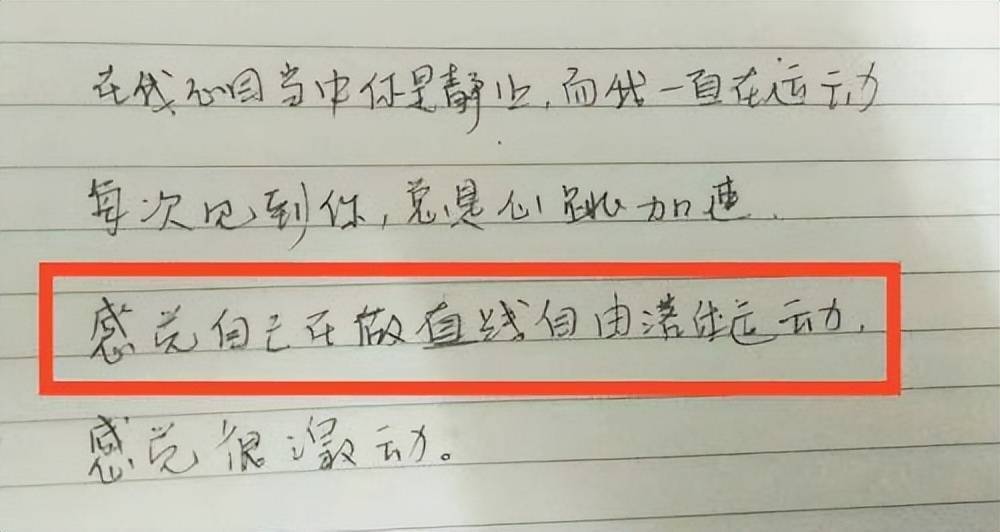 在我心目当中你是静止,而我一直在运动
每次见到你,总是心跳加速.
感觉自己在做直线自由落体运动.
感觉很激动。